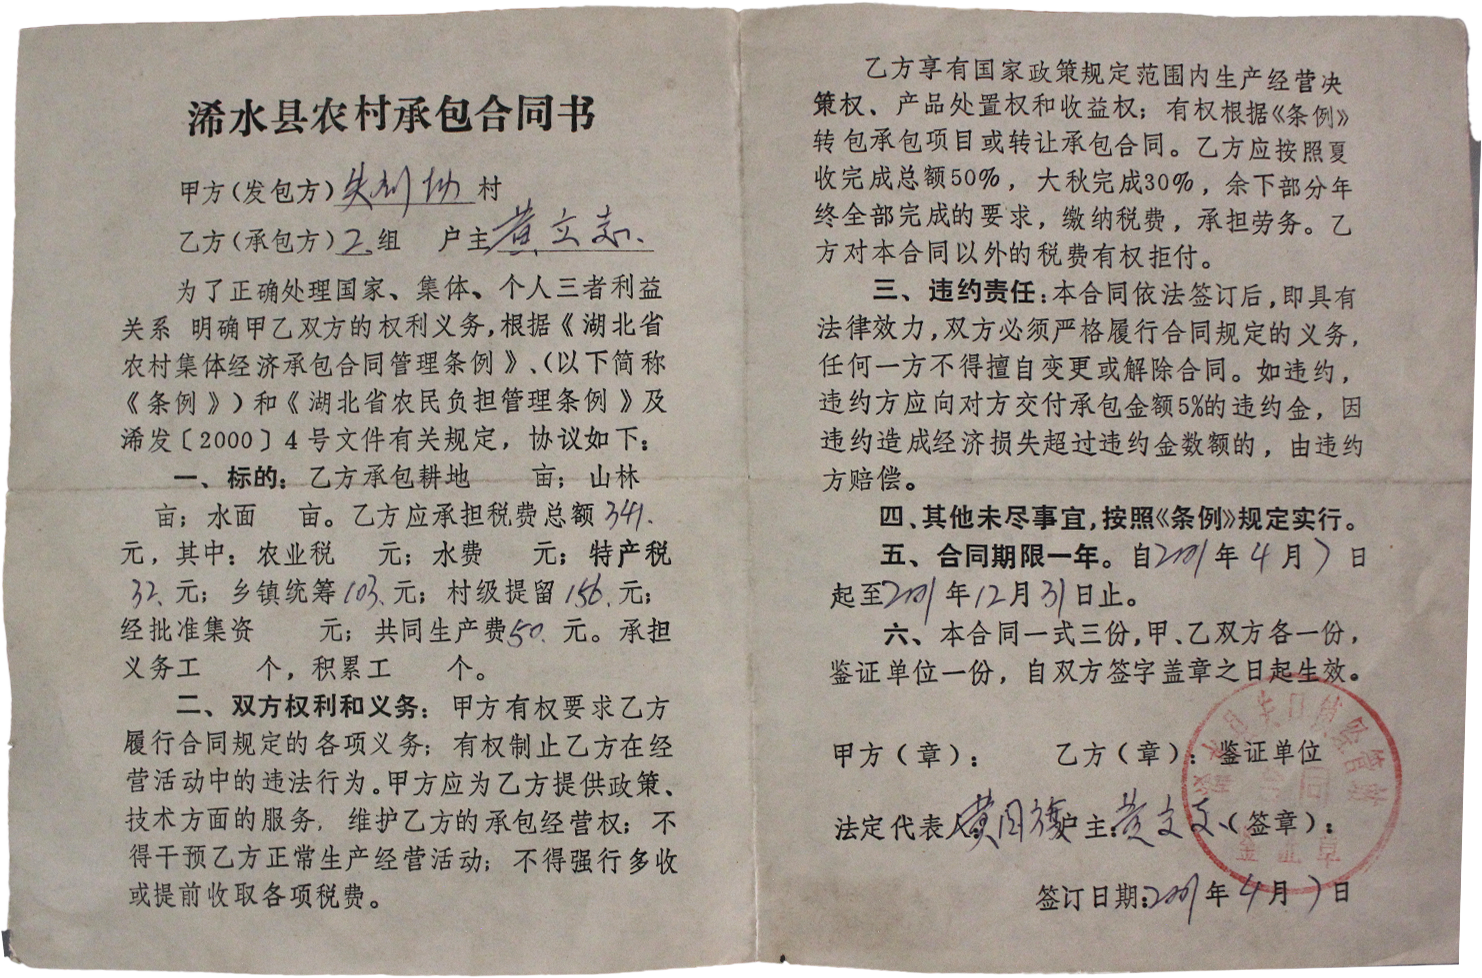 浠水县农村承包合同书
甲方(发包方)村
乙方(承包方)2组 户主黄立志
为了正确处理国家、集体、个人三者利益
关系 明确甲乙双方的权利义务,根据《湖北省
农村集体经济承包合同管理条例》、(以下简称
《条例》)和《湖北省农民负担管理条例》及
浠发〔2000〕4号文件有关规定，协议如下:
一、标的:乙方承包耕地 亩;山林
亩;水面 亩。乙方应承担税费总额341.
元，其中:农业税 元;水费 元;特产税
32.元;乡镇统筹103.元;村级提留156.元;
经批准集资 元;共同生产费50.元。承担
义务工 个，积累工 个。
二、双方权利和义务:甲方有权要求乙方
履行合同规定的各项义务;有权制止乙方在经
营活动中的违法行为。甲方应为乙方提供政策、
技术方面的服务，维护乙方的承包经营权;不
得干预乙方正常生产经营活动;不得强行多收
或提前收取各项税费。
乙方享有国家政策规定范围内生产经营决
策权、产品处置权和收益权;有权根据《条例》
转包承包项目或转让承包合同。乙方应按照夏
收完成总额50%，大秋完成30%，余下部分年
终全部完成的要求，缴纳税费，承担劳务。乙
方对本合同以外的税费有权拒付。
三、违约责任:本合同依法签订后,即具有
法律效力,双方必须严格履行合同规定的义务,
任何一方不得擅自变更或解除合同。如违约，
违约方应向对方交付承包金额5%的违约金，因
违约造成经济损失超过违约金数额的，由违约
方赔偿。
四、其他未尽事宜,按照《条例》规定实行。
五、合同期限一年。自2001年4月7日
起至2001年12月31日止。
六、本合同一式三份,甲、乙双方各一份,
鉴证单位一份，自双方签字盖章之日起生效。
甲方(章): 乙方(章):鉴证单位
法定代表人: 户主:黄立志(签章):
签订日期:2001年4月7日
合同
鉴证章